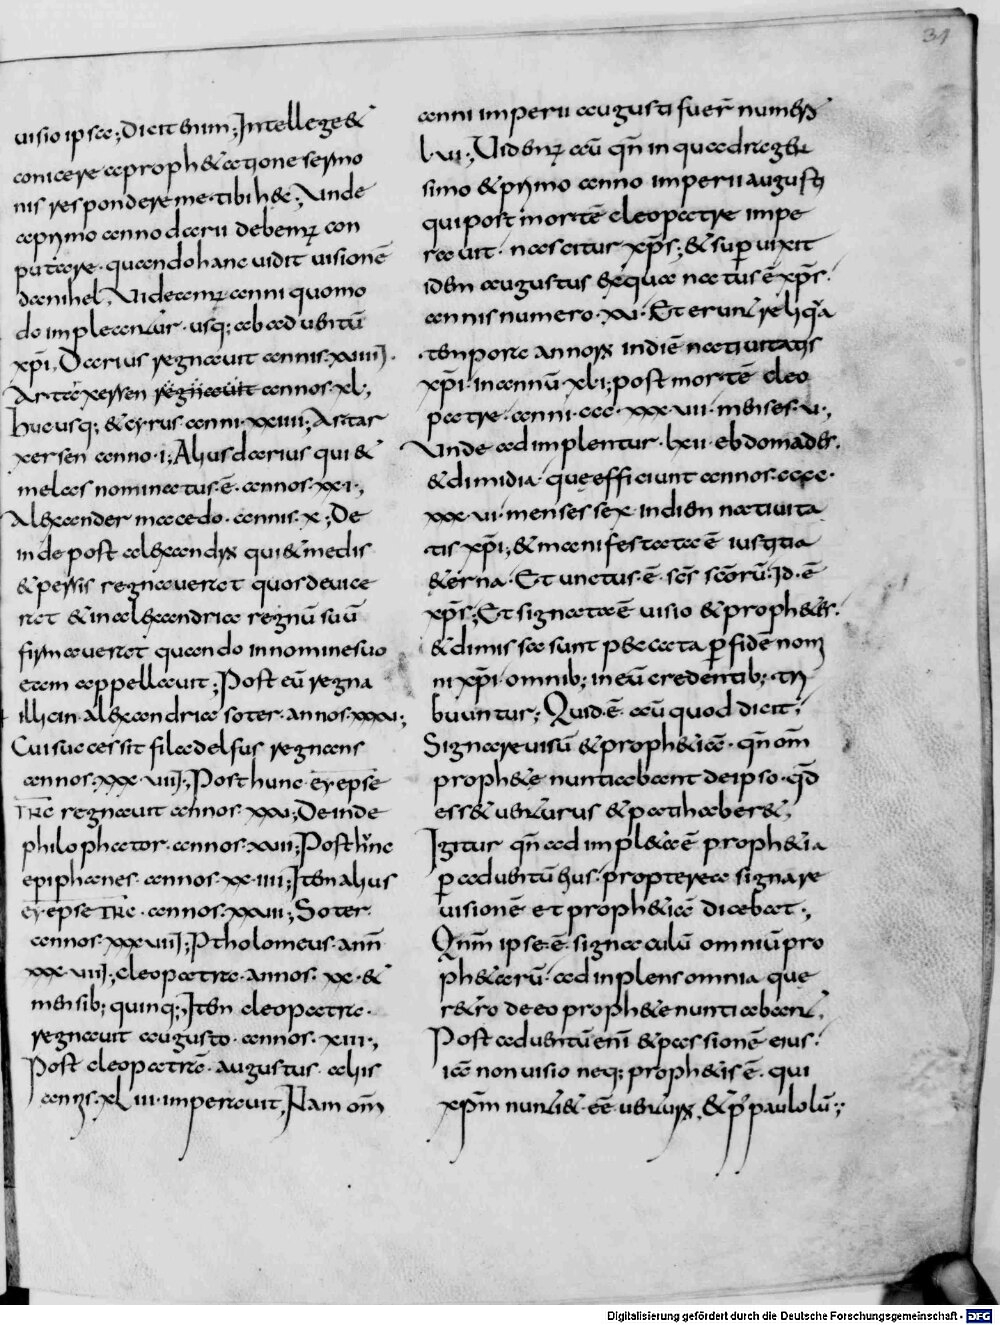 31
uisio ipsa; Dicit enim; Intellege &
conicere a proph&atione sermo
nis respondere me tibi h&c; Unde
a primo anno darii debem; con
putare quando hanc uidit uisionē
danihel, Uideam; anni quomo
do impleantur usq; ab aduentū
xp̄i, Darius regnauit annis xuiiii.
Artaxersen regnauit annos xl;,
Huc usq; & cyrus anni xxiiii; Artar
xersen anno i; Alius darius qui &
melas nominatus ē annos xxi;,
Alexander macedo annis x; De
inde post alexandrū qui & medis
& persis regnauerat quos deuice
rat & in alexandria regnū suū
firmauerat quando in nomine suo
eam appellauit; Post eū regna
illic in alexandria soter annos xxxu;
Cui successit filadelfus regnans
annos xxxuiiii; Post hunc
regnauit annos xxu; Deinde
philophator annos xuii; Post hunc
epiphanes annos xxiiii; Item alius
annos xxuiii; Soter
annos xxxuiii; Ptholomeus ann̄
xxxuiii; cleopatra annos xx &
mensib; quinq; Item cleopatra
regnauit augusto annos xiii;,
Post cleopatrā augustus aliis
annis xliii imperauit, Nam om̄
anni imperii augusti fuer̄ numero
lui; Uidem; aū qn̄ in quadragesi
simo & primo anno imperii augusti
qui post mortē cleopatre impe
rauit nascitur xp̄s; & sup uixit
idem augustus exquo natus ē xp̄s
annis numero xu Et erunt reliqa
tempora annorū indiē natiuitatis
xp̄i in annū xli; post mortē cleo
patre anni ccc xxxuii menses u;,
Unde adimplentur lxii ebdomades
& dimidia que efficiunt annos cccc
xxxui menses sex in diem natiuita
tis xp̄i; & manifestata ē iustitia
&erna Et unctus ē sc̄s sc̄orū Id ē
xp̄s; Et signata ē uisio & proph&es
& dimissa sunt peccata p fidē nom
ni xp̄i omnib; in eū credentib; tri
buuntur; Quid ē aū quod dicit;
Signare uisū & proph&iā qn̄ om̄
proph&e nuntiabant deipso qd̄
ess& uenturus & pati haber&;
Igitur qn̄ adimpl&a ē proph&ia
p aduentū eius propterea signare
uisionē et proph&iā dicebat;,
Qn̄m ipse ē signaculū omniū pro
ph&arū adinplens omnia que
r&ro de eo proph&e nuntiabant,
Post aduentū eni & passionē eius
iā non uisio neq; proph&is ē qui
xp̄m nunti& eē uenturū, & p̄ paulolū;
Digitalisierung gefördert durch die Deutsche Forschungsgemeinschaft - DFG